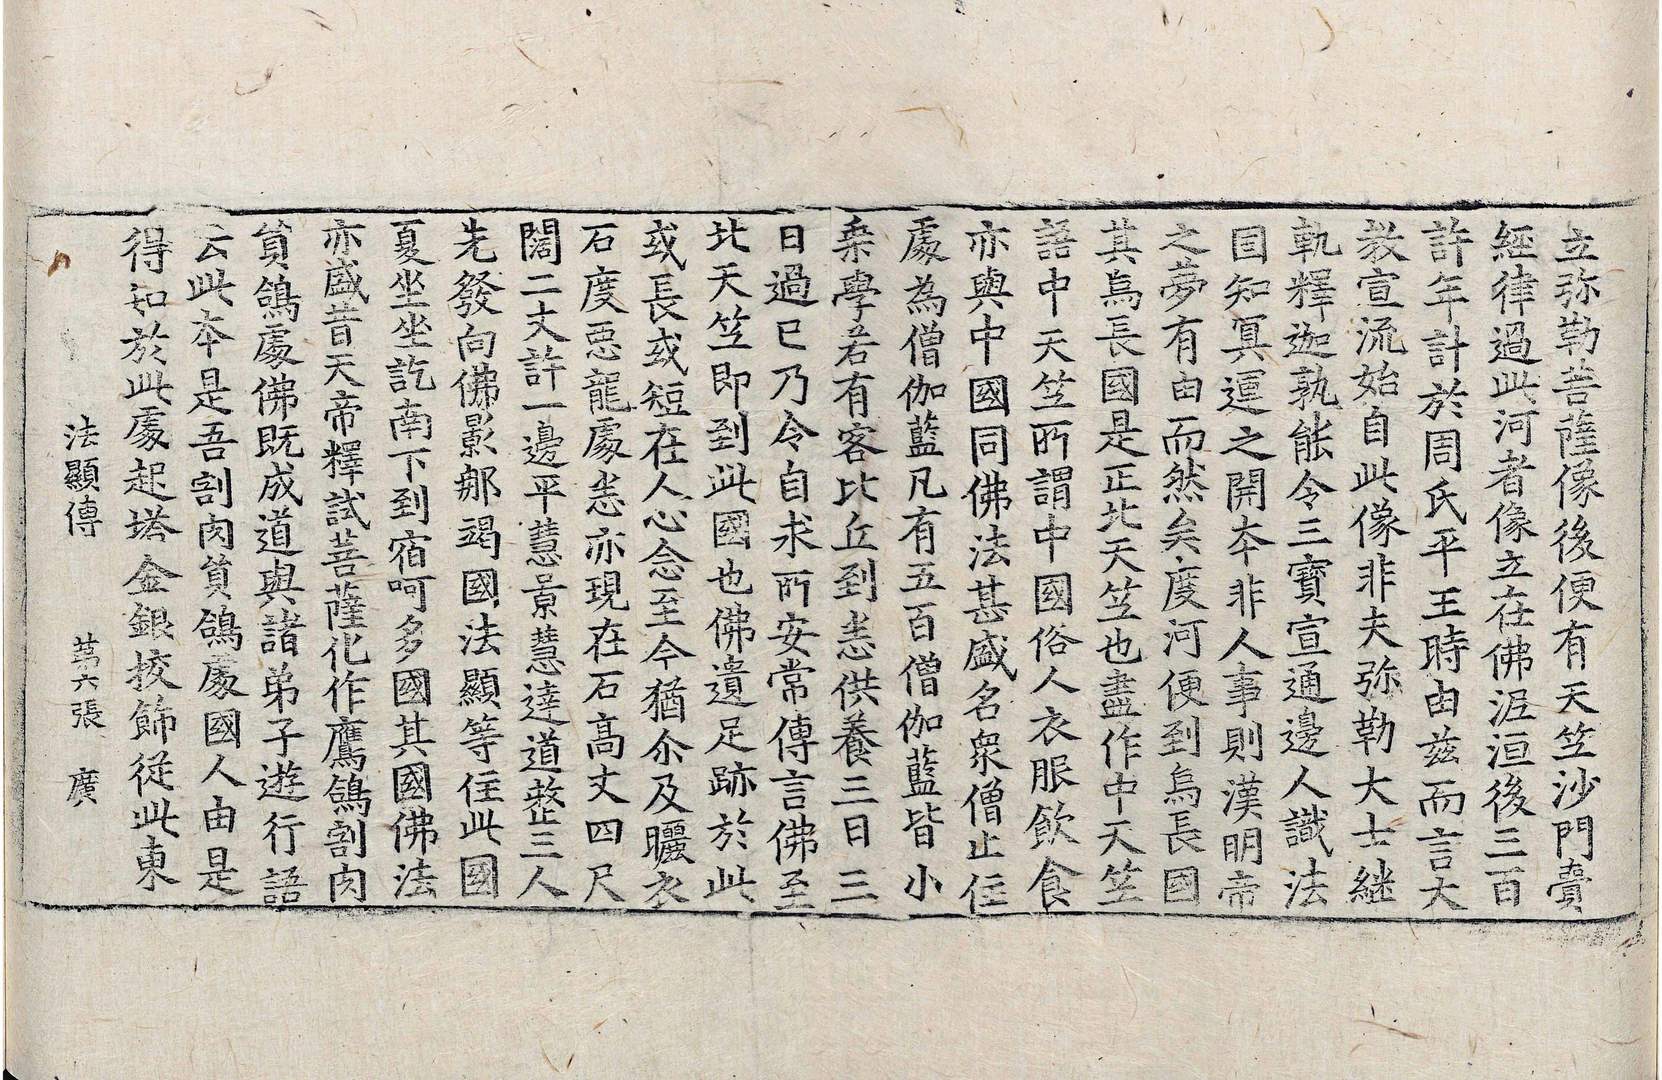 立弥勒菩薩像後便有天竺沙門賷
經律過此河者像立在佛泥洹後三百
許年計於周氏平王時由兹而言大
教宣流始自此像非夫弥勒大士継
軌釋迦孰能令三寶宣通邊人識法
固知冥運之開本非人事則漢明帝
之夢有由而然矣度河便到烏長國
其烏長國是正北天竺也盡作中天竺
語中天竺所謂中國俗人衣服飲食
亦與中國同佛法甚盛名衆僧止住
處為僧伽藍凡有五百僧伽藍皆小
乗學若有客比丘到悉供養三日三
日過已乃令自求所安常傳言佛至
北天竺即到此國也佛遺足跡於此
或長或短在人心念至今猶尒及曬衣
石度惡龍處悉亦現在石高丈四尺
闊二丈許一邊平慧景慧達道整三人
先發向佛影那竭國法顯等住此國
夏坐坐訖南下到宿呵多國其國佛法
亦盛昔天帝釋試菩薩化作鷹鴿割肉
貿鴿處佛既成道與諸弟子遊行語
云此本是吾割肉貿鴿處國人由是
得知於此處起塔金銀挍飾從此東
法顯傳 苐六張 廣